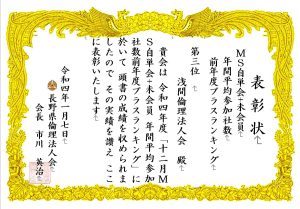 表彰状
MS自単会+未会員
年間平均参加社数
前年度プラスランキング
第三位
浅間倫理法人会 殿
貴会は 令和四年度「十二月M
S自単会+未会員 年間平均参加
社数前年度プラスランキング」に
於いて 頭書の成績を収められま
したので その実績を讃え ここ
に表彰いたします
令和四年一月七日
長野県倫理法人会
会長 市川 英治